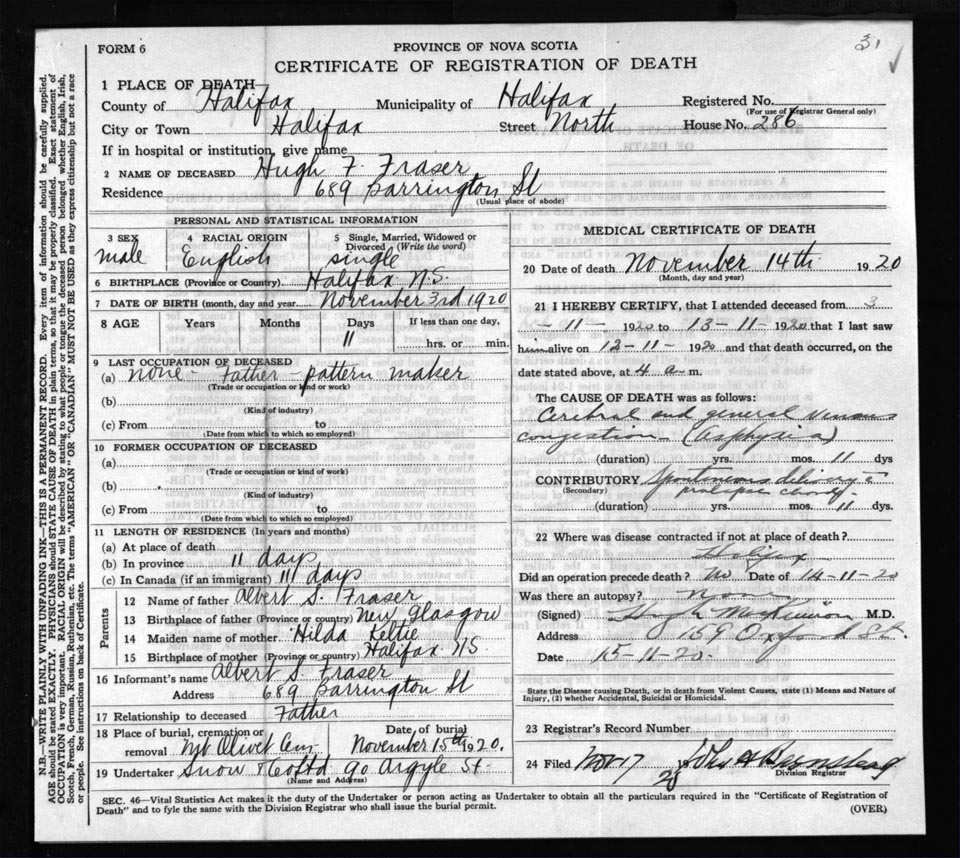 FORM 6
31
PROVINCE OF NOVA SCOTIA
CERTIFICATE OF REGISTRATION OF DEATH
1 PLACE OF DEATH
County of Halifax Municipality of Halifax Registered No.
(For use of Registrar General only)
City or Town Halifax Street North House No. 286
If in hospital or institution, give name
2 NAME OF DECEASED Hugh F. Fraser
Residence 689 Barrington St
(Usual place of abode)
PERSONAL AND STATISTICAL INFORMATION
3 SEX male
4 RACIAL ORIGIN English
5 Single, Married, Widowed or Divorced (Write the word) single
6 BIRTHPLACE (Province or Country) Halifax N.S.
7 DATE OF BIRTH (month, day and year November 3rd 1920
8 AGE Years Months Days 11 If less than one day, hrs. or min.
9 LAST OCCUPATION OF DECEASED
(a) none - Father - pattern maker
(Trade or occupation or kind of work)
(b)
(Kind of industry)
(c) From to
(Date from which to which so employed)
10 FORMER OCCUPATION OF DECEASED
(a)
(Trade or occupation or kind of work)
(b)
(Kind of industry)
(c) From to
(Date from which to which so employed)
11 LENGTH OF RESIDENCE (In years and months)
(a) At place of death
(b) In province 11 days
(c) In Canada (if an immigrant) 11 days
Parents
12 Name of father Albert S. Fraser
13 Birthplace of father (Province or country) New Glasgow
14 Maiden name of mother Hilda Keltie
15 Birthplace of mother (Province or country) Halifax N.S.
16 Informant's name Albert S. Fraser
Address 689 Barrington St
17 Relationship to deceased Father
18 Place of burial, cremation or removal Mt Olivet Cem
Date of burial November 15th 1920.
19 Undertaker Snow & Co Ltd 90 Argyle St
(Name and Address)
MEDICAL CERTIFICATE OF DEATH
20 Date of death November 14th 1920
(Month, day and year)
21 I HEREBY CERTIFY, that I attended deceased from 3
-11- 1920 to 13-11-1920 that I last saw
him alive on 12-11-1920 and that death occurred, on the
date stated above, at 4 a.m.
The CAUSE OF DEATH was as follows:
Cerebral and general venous
congestion (asphyxia)
(duration) yrs. mos. 11 dys
CONTRIBUTORY Spontaneous delivery c̄
(Secondary) prolapse
(duration) yrs. mos. 11 dys.
22 Where was disease contracted if not at place of death?
Halifax
Did an operation precede death? No Date of 14-11-20
Was there an autopsy?
(Signed) Hugh MacKinnon M.D.
Address 159 Oxford St.
Date 15-11-20.
State the Disease causing Death, or in death from Violent Causes, state (1) Means and Nature of
Injury, (2) whether Accidental, Suicidal or Homicidal.
23 Registrar's Record Number
24 Filed Nov 17 19
Division Registrar
SEC. 46—Vital Statistics Act makes it the duty of the Undertaker or person acting as Undertaker to obtain all the particulars required in the "Certificate of Registration of
Death" and to fyle the same with the Division Registrar who shall issue the burial permit. (OVER)
N.B.—WRITE PLAINLY WITH UNFADING INK—THIS IS A PERMANENT RECORD. Every item of information should be carefully supplied.
AGE should be stated EXACTLY. PHYSICIANS should STATE CAUSE OF DEATH in plain terms, so that it may be properly classified. Exact statement of
OCCUPATION is very important. RACIAL ORIGIN will be described by stating to what people or tongue the deceased person belonged whether English, Irish,
Scotch, French, German, Russian, Ruthenian, etc. The terms "AMERICAN" OR "CANADIAN" MUST NOT BE USED as they express citizenship but not a race
or people. See instructions on back of Certificate.